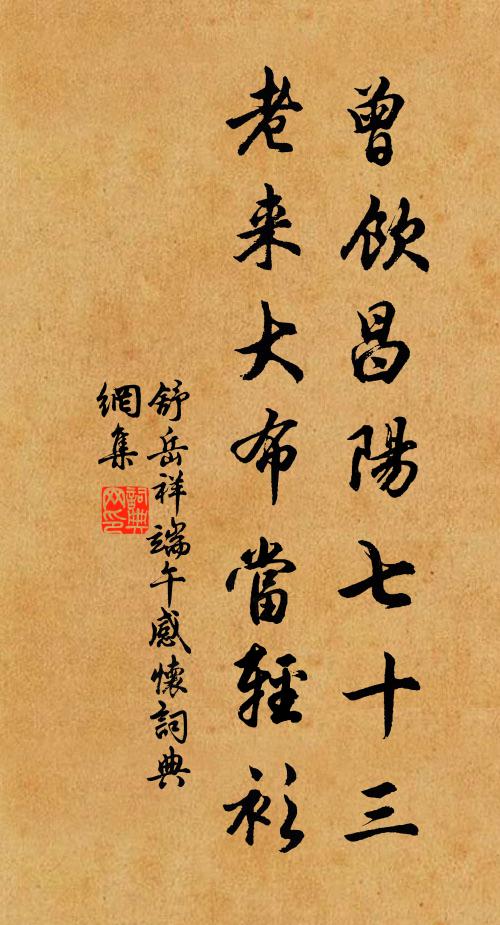 曾飲昌陽七十三
老来大布當輕衫
舒岳祥端午感懷詞典
網集
詞典
网印